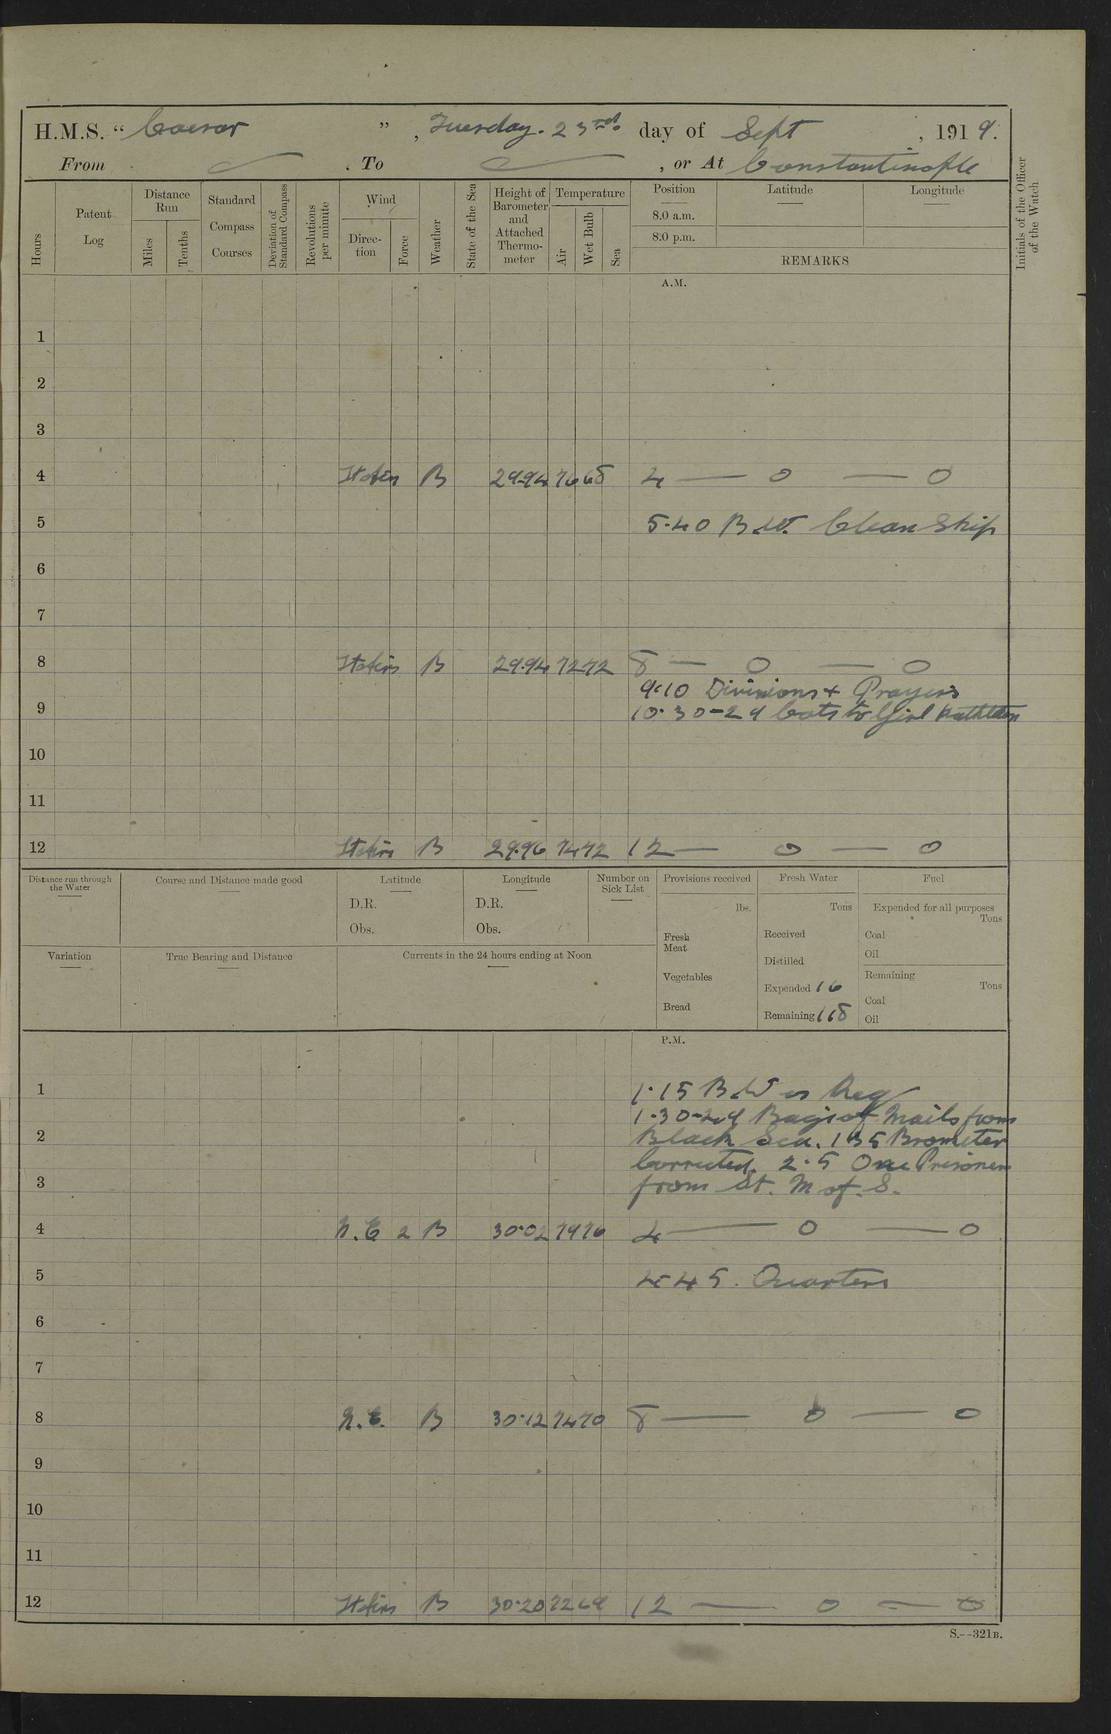 H.M.S. " Caesar ", Tuesday. 23rd. day of Sept , 1919.
From . To , or At Constantinople
Hours
Patent Log
Distance Run
Miles
Tenths
Standard Compass Courses
Deviation of Standard Compass
Revolutions per minute
Wind
Direction
Force
Weather
State of the Sea
Height of Barometer and Attached Thermometer
Temperature
Air
Wet Bulb
Sea
Position
Latitude
Longitude
8.0 a.m.
8.0 p.m.
REMARKS
Initials of the Officer of the Watch
A.M.
1
2
3
4 B 29.94 76 68 4 — 0 — 0
5 5.40 B.W. Clean Ship
6
7
8 B 29.94 72 72 8 — 0 — 0
9.10 Divisions + Prayers
9 10.30-29 to Girl
10
11
12 B 29.96 74 72 12 — 0 — 0
Distance run through the Water
Course and Distance made good
Latitude
D.R.
Obs.
Longitude
D.R.
Obs.
Number on Sick List
Provisions received
lbs.
Fresh Meat
Vegetables
Bread
Fresh Water
Tons
Received
Distilled
Expended 16
Remaining 118
Fuel
Expended for all purposes
Tons
Coal
Oil
Remaining
Tons
Coal
Oil
Variation
True Bearing and Distance
Currents in the 24 hours ending at Noon
P.M.
1 1.15 B.W as Req
1.30-29 Bags of Mails from
2 Black Sea. 135 Brometer
Corrected. 2.5 One Prisoner
3 from St. M of. S.
4 N.E 2 B 30.02 79 76 4 — 0 — 0
5 4.45. Quarters
6
7
8 N.E. B 30.12 74 70 8 — 0 — 0
9
10
11
12 B 30.20 72 69 12 — 0 — 0
S.--321B.